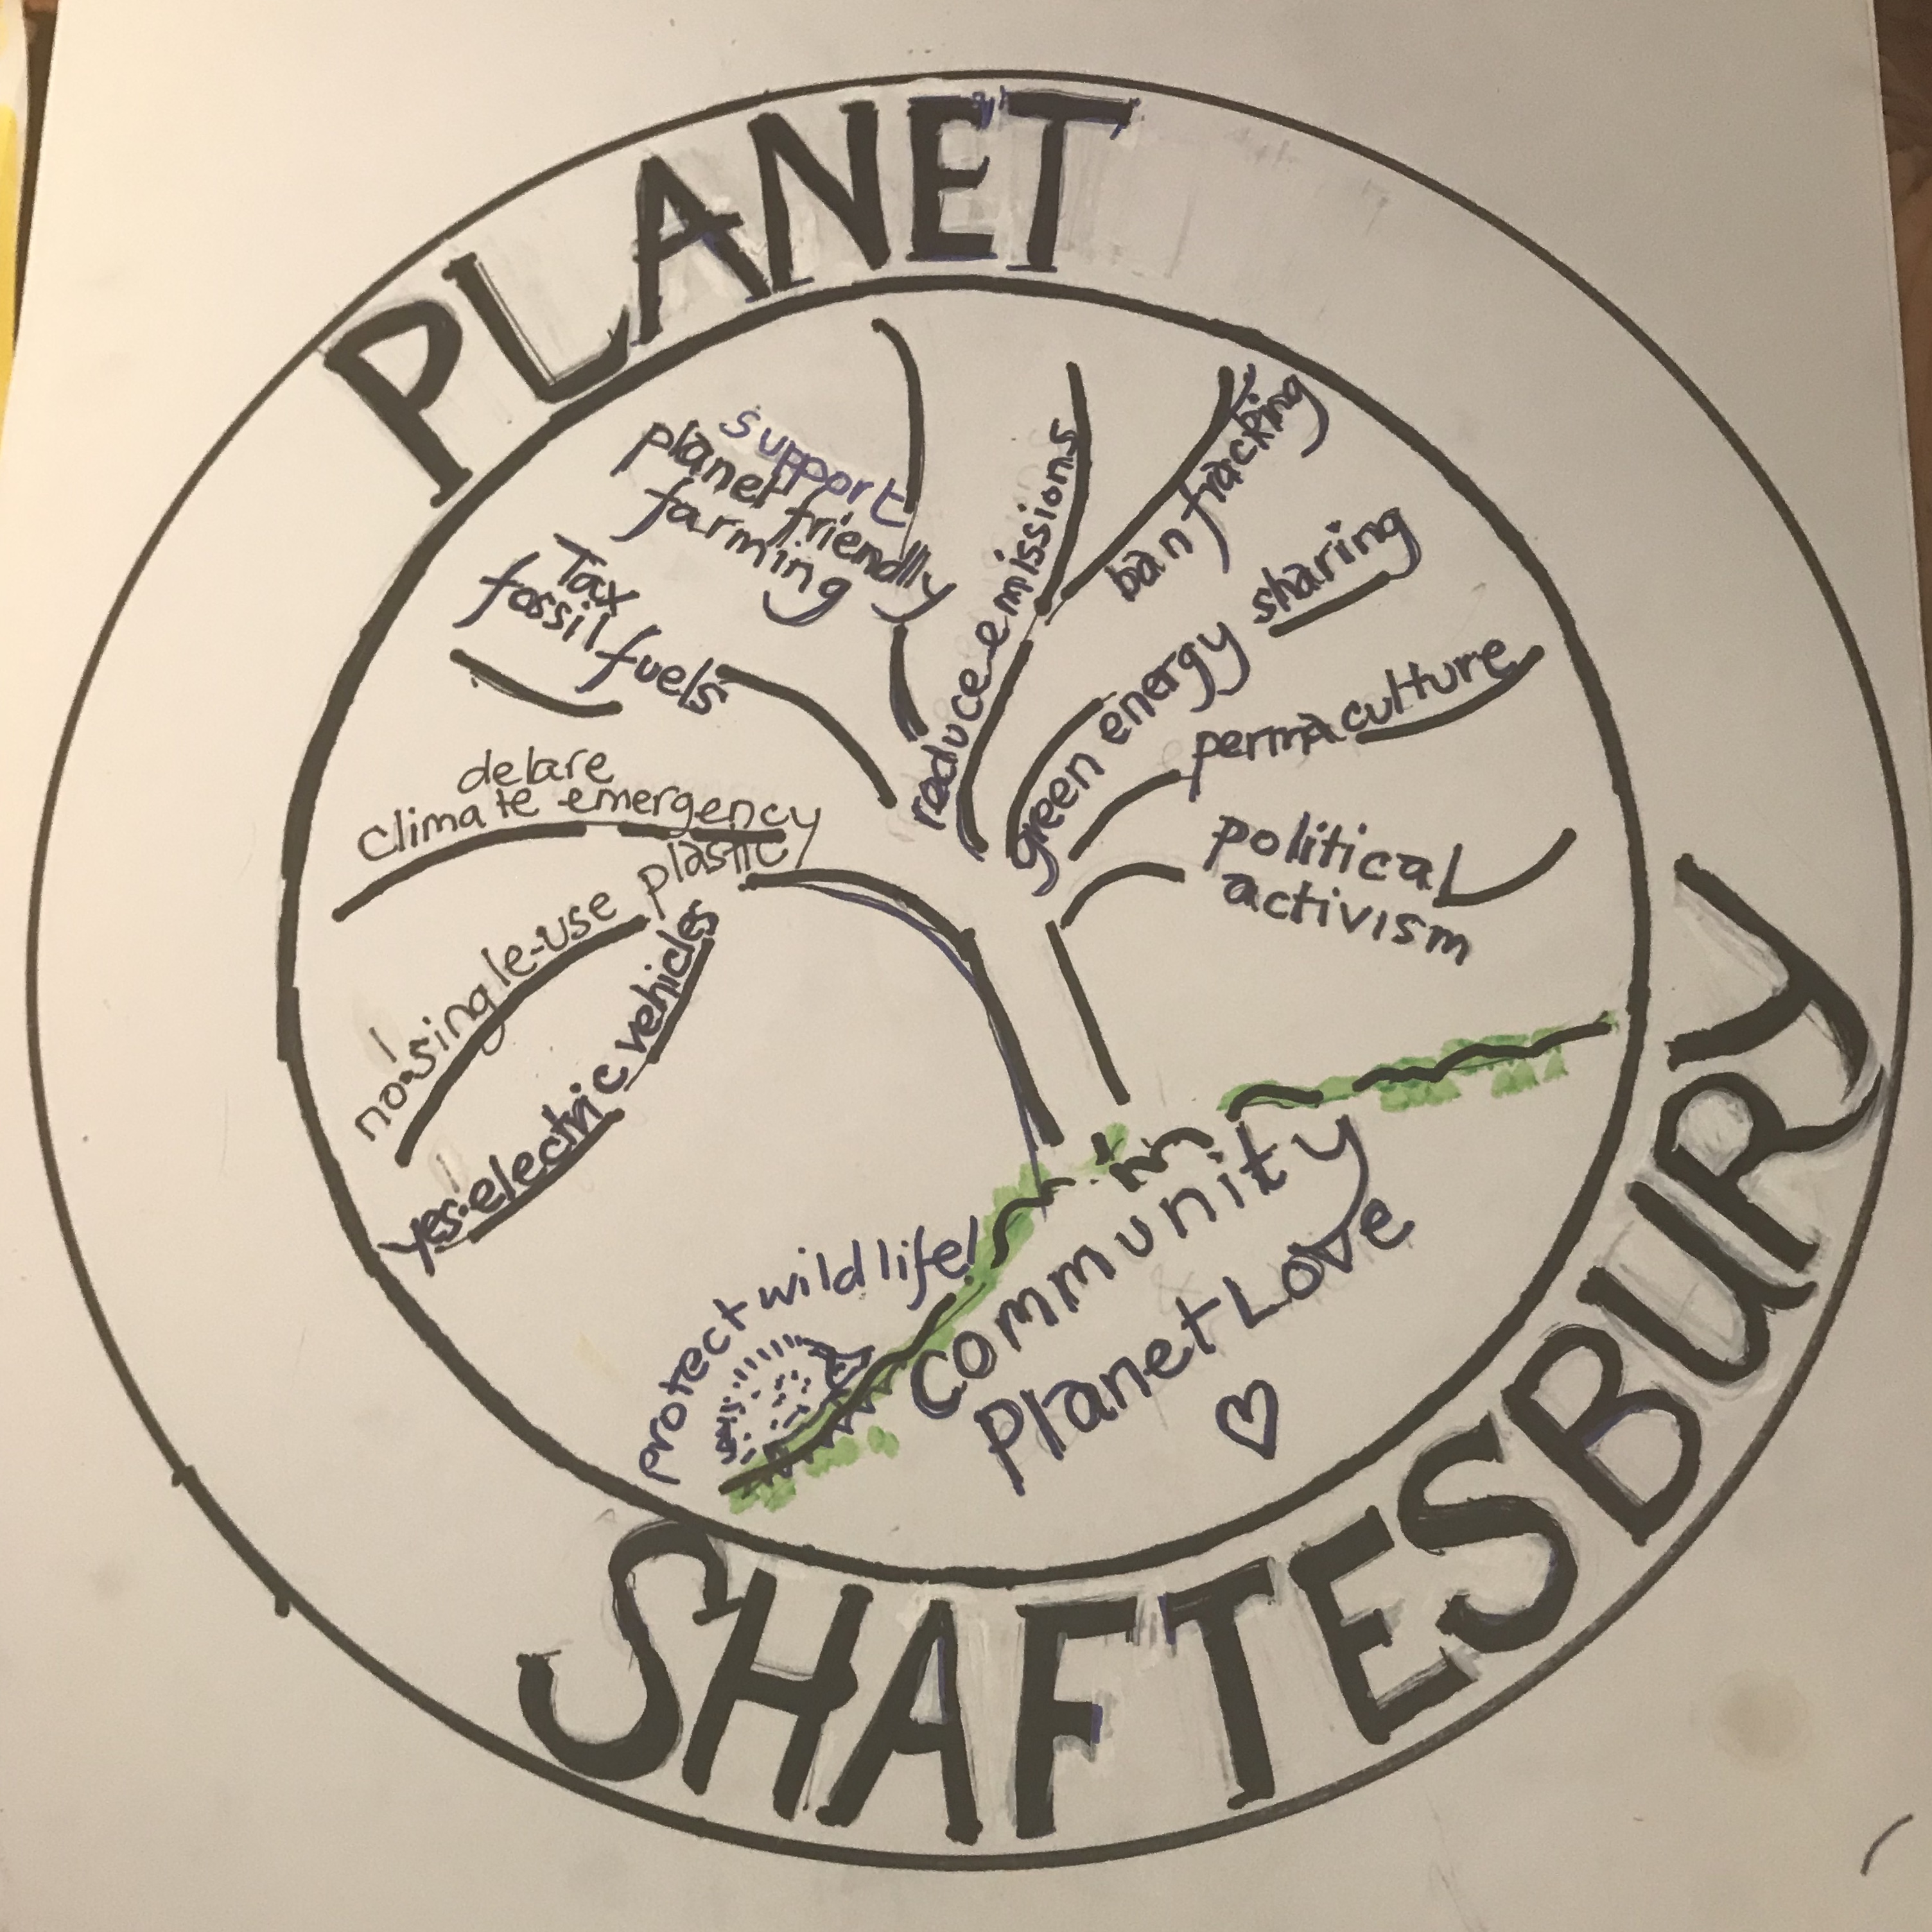 PLANET
support
planet friendly
farming
Tax
fossil fuels
delare
climate emergency
no-single-use plastic
yes-electric vehicles
reduce emissions
ban fracking
green energy sharing
permaculture
political
activism
protect wildlife!
community
Planet Love
SHAFTESBURY